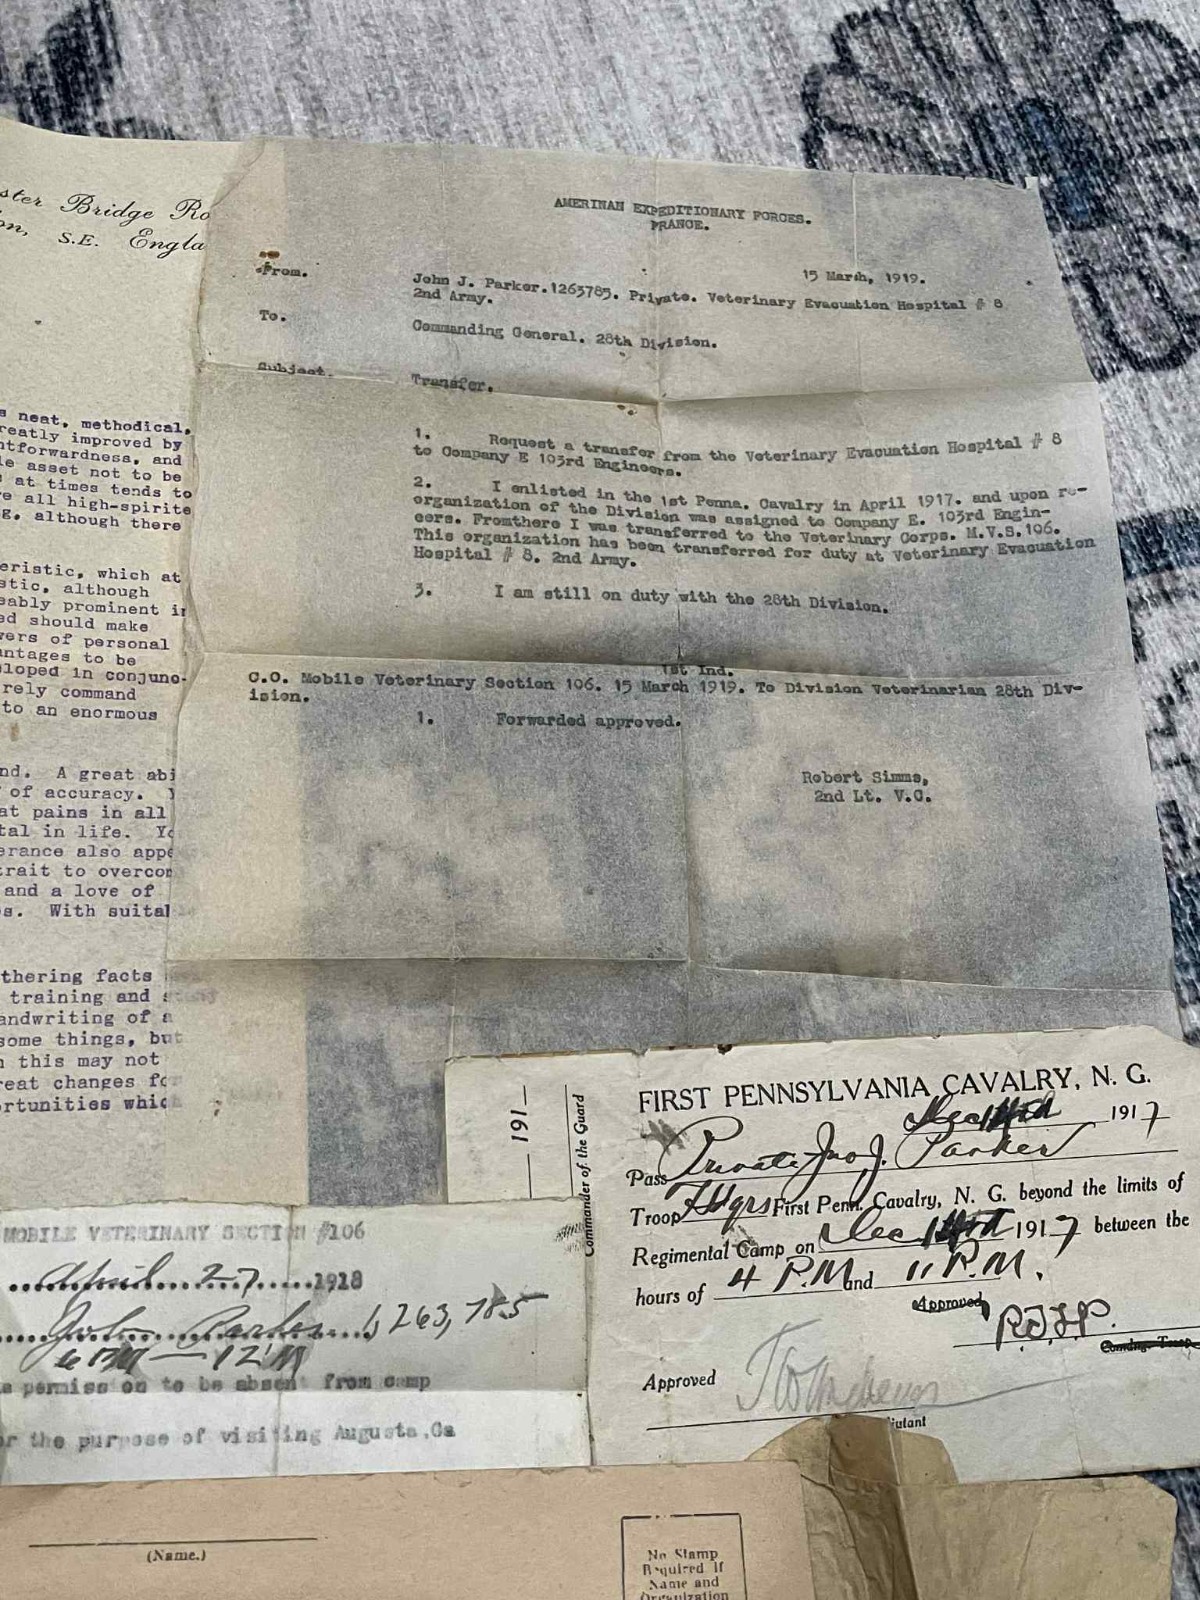 ster Bridge Ro
on, S.E. Engla
s neat, methodical,
reatly improved by
ntforwardness, and
le asset not to be
at times tends to
e all high-spirite
g, although there
eristic, which at
stic, although
eably prominent in
ed should make
wers of personal
antages to be
loped in conjunc-
rely command
to an enormous
nd. A great abi
of accuracy.
at pains in all
tal in life. Yo
erance also appe
trait to overcom
and a love of
s. With suital
thering facts
training and
andwriting of a
some things, but
n this may not
reat changes fo
ortunities which
AMERINAN EXPEDITIONARY FORCES.
FRANCE.
15 March, 1919.
From. John J. Parker.1263785. Private. Veterinary Evacuation Hospital # 8
2nd Army.
To. Commanding General. 28th Division.
Subject. Transfer.
1. Request a transfer from the Veterinary Evacuation Hospital # 8
to Company E 103rd Engineers.
2. I enlisted in the 1st Penna. Cavalry in April 1917. and upon re-
organization of the Division was assigned to Company E. 103rd Engin-
eers. Fromthere I was transferred to the Veterinary Corps. M.V.S.106.
This organization has been transferred for duty at Veterinary Evacuation
Hospital # 8. 2nd Army.
3. I am still on duty with the 28th Division.
1st Ind.
C.O. Mobile Veterinary Section 106. 15 March 1919. To Division Veterinarian 28th Div-
ision.
1. Forwarded approved.
Robert Simms,
2nd Lt. V.C.
191
Commander of the Guard
FIRST PENNSYLVANIA CAVALRY, N. G.
Dec 1917
Pass Private Jno J. Parker
Troop Hqrs First Penn. Cavalry, N. G. beyond the limits of
Regimental Camp on Dec 1917 between the
hours of 4 P.M. and 11 P.M.
Approved
R.J.P.
Comdng. Troop
Approved
jutant
MOBILE VETERINARY SECTION #106
April 27 1918
John Parker 1,263,785
6 PM — 12 M
permission to be absent from camp
or the purpose of visiting Augusta,Ga
(Name.)
No Stamp
Required if
Name and
Organization